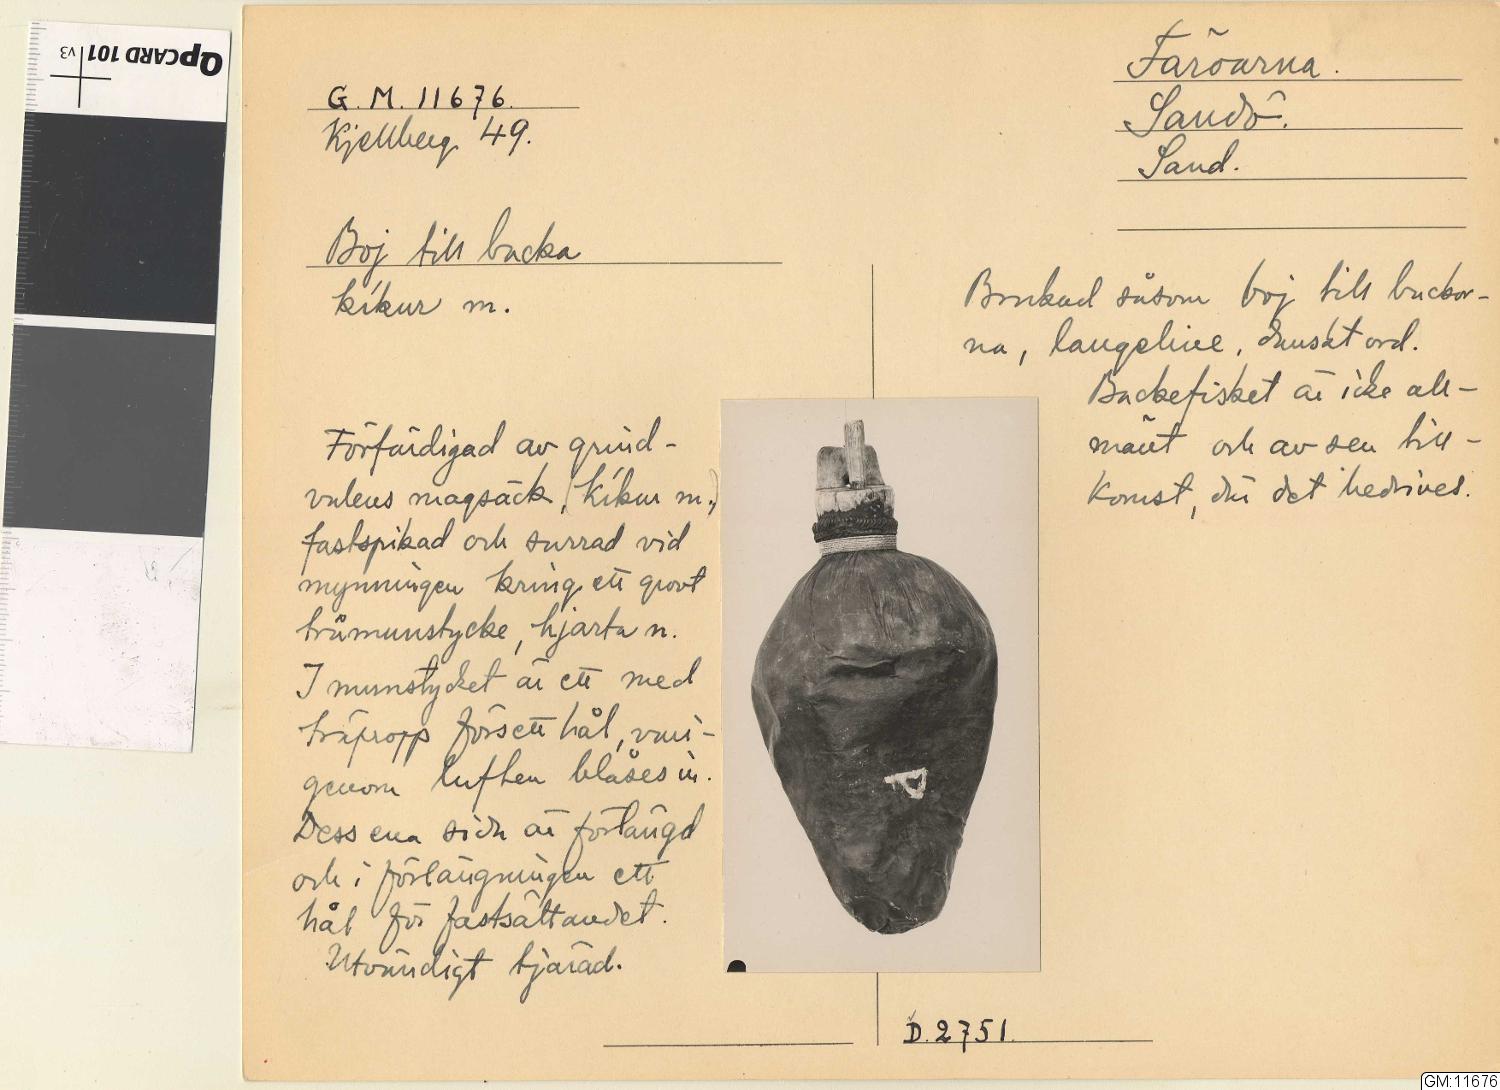 QpCARD 101 v3
G. M. 11676.
Kjellberg 49.
Färöarna.
Sandö.
Sand.
Boj till backa
kíkur m.
Brukad såsom boj till backor-
na, langeline, danskt ord.
Backefisket är icke all-
mänt och av sen till-
komst, där det bedrives.
Förfärdigad av grind-
valens magsäck, (kíkur m.,)
fastspikad och surrad vid
mynningen kring ett grovt
trämunstycke, hjarta n.
I munstycket är ett med
träpropp försett hål, vari-
genom luften blåses in.
Dess ena sida är förlängd
och i förlängningen ett
hål för fastsättandet.
Utvändigt tjärad.
D. 2751.
GM:11676